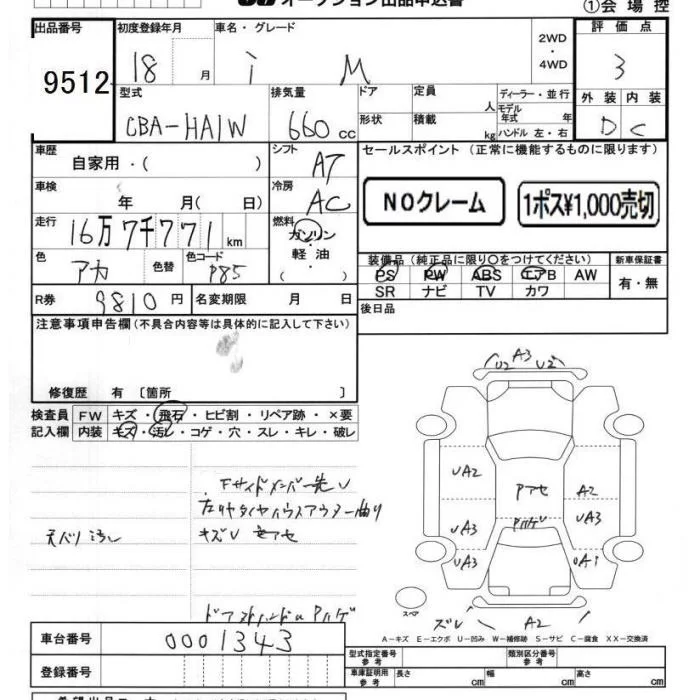 オークション出品申込書
①会場控
出品番号 9512
初度登録年月 18 年 月
車名・グレード i M
2WD・4WD
評価点 3
外装 D 内装 C
型式 CBA-HA1W
排気量 660 cc
ドア 形状
定員 人
積載 kg
ディーラー・並行
モデル年式 年
ハンドル 左・右
車歴 自家用・( )
シフト AT
車検 年 月( 日)
冷房 AC
走行 16万7千771 km
燃料 ガソリン・軽油・( )
色 アカ 色替 色コード P85
R券 9810 円 名変期限 月 日
セールスポイント (正常に機能するものに限ります)
NOクレーム
1ポス¥1,000売切
装備品 (純正品に限り○をつけてください)
PS PW ABS エアB AW
SR ナビ TV カワ
新車保証書 有・無
後日品
注意事項申告欄 (不具合内容等は具体的に記入して下さい)
修復歴 有 〔箇所 〕
検査員記入欄
FW キズ・飛石・ヒビ割・リペア跡・×要
内装 キズ・汚レ・コゲ・穴・スレ・キレ・破レ
Fサイドメンバー先U
左リヤタイヤハウスアウター曲り
キズU
天バリ汚レ
U2 A3 U2
UA2 Pアセ A2
UA3 Pハゲ UA3
UA3 UA1
スペア
ズレ A2
A-キズ E-エクボ U-凹み W-補修跡 S-サビ C-腐食 XX-交換済
車台番号 0001343
登録番号
型式指定番号 参考
類別区分番号 参考
車庫証明用 参考 長さ cm 幅 cm 高さ cm